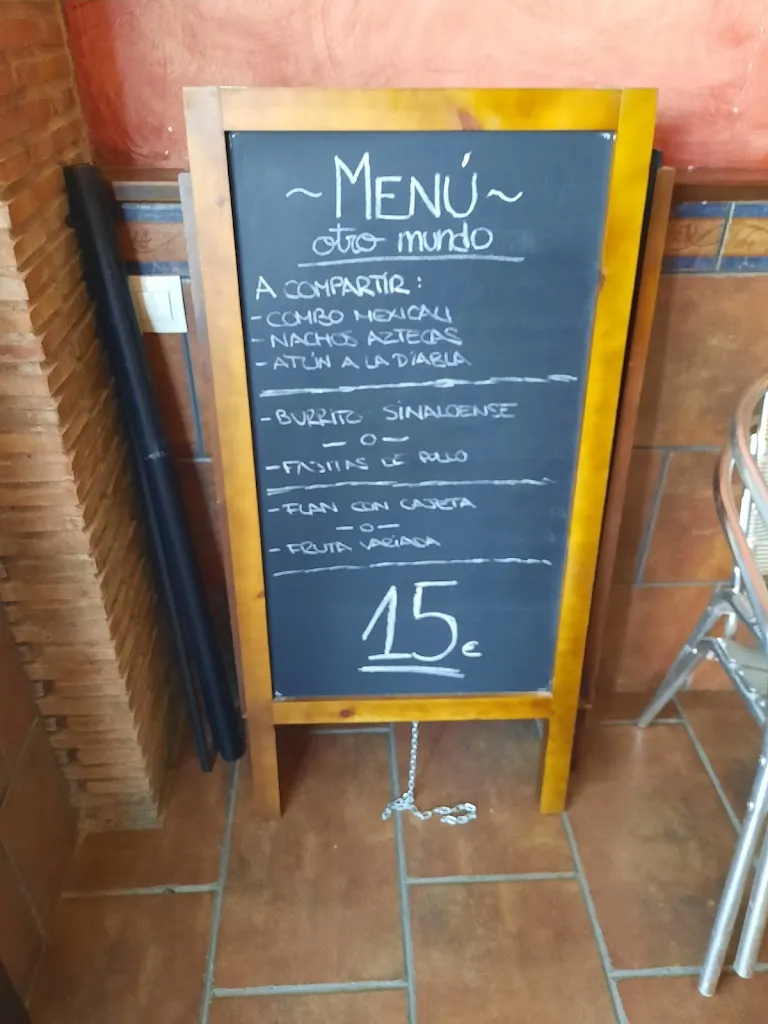 ~ MENÚ ~
otro mundo
A COMPARTIR:
- COMBO MEXICALI
- NACHOS AZTECAS
- ATÚN A LA DIABLA
- BURRITO SINALOENSE
— O —
- FAJITAS DE POLLO
- FLAN CON CAJETA
— O —
- FRUTA VARIADA
15€